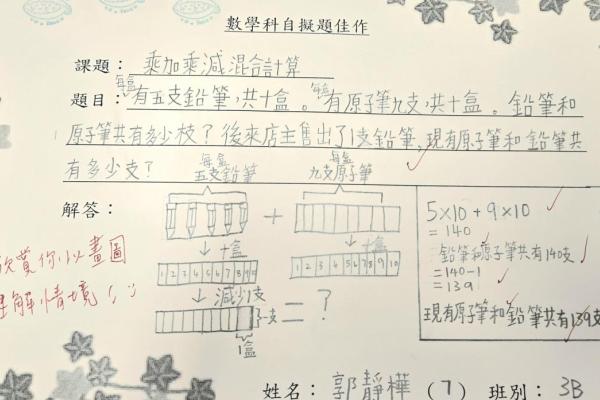 數學科自擬題佳作
課題：乘加乘減混合計算
題目：每盒有五支鉛筆，共十盒。每盒有原子筆九支，共十盒。鉛筆和
原子筆共有多少枝？後來店主售出了1支鉛筆，現有原子筆和鉛筆共
有多少支？
每盒五支鉛筆
每盒九支原子筆
解答：
+
5×10+9×10
=140
鉛筆和原子筆共有140支
=140-1
=139
現有原子筆和鉛筆共有139支
十盒
十盒
1 2 3 4 5 6 7 8 9 10
1 2 3 4 5 6 7 8 9 10
減少1支
一支
= ?
1盒
欣賞你以畫圖
理解情境
姓名：郭靜樺（7） 班別：3B